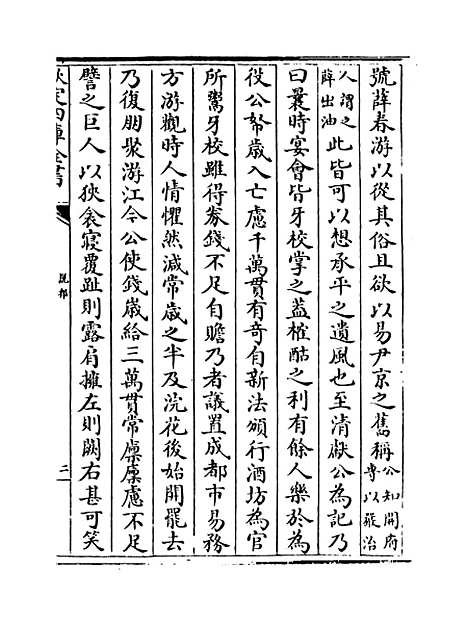 號薛春游以從其俗且欲以易尹京之舊稱公知開府專以嚴治
人謂之薛出油此皆可以想承平之遺風也至清獻公為記乃
曰曩時宴會皆牙校掌之益榷酤之利有餘人樂於為
役公帑歲入亡慮千萬貫有奇自新法頒行酒坊為官
所鬻牙校雖得券錢不足自贍乃者議置成都市易務
方游觀時人情懼然減常歲之半及浣花後始開罷去
乃復朋聚游江今公使錢歲給三萬貫常廩廩慮不足
譬之巨人以狹衾寢覆趾則露肩擁左則闕右甚可笑
欽定四庫全書
說郛
二